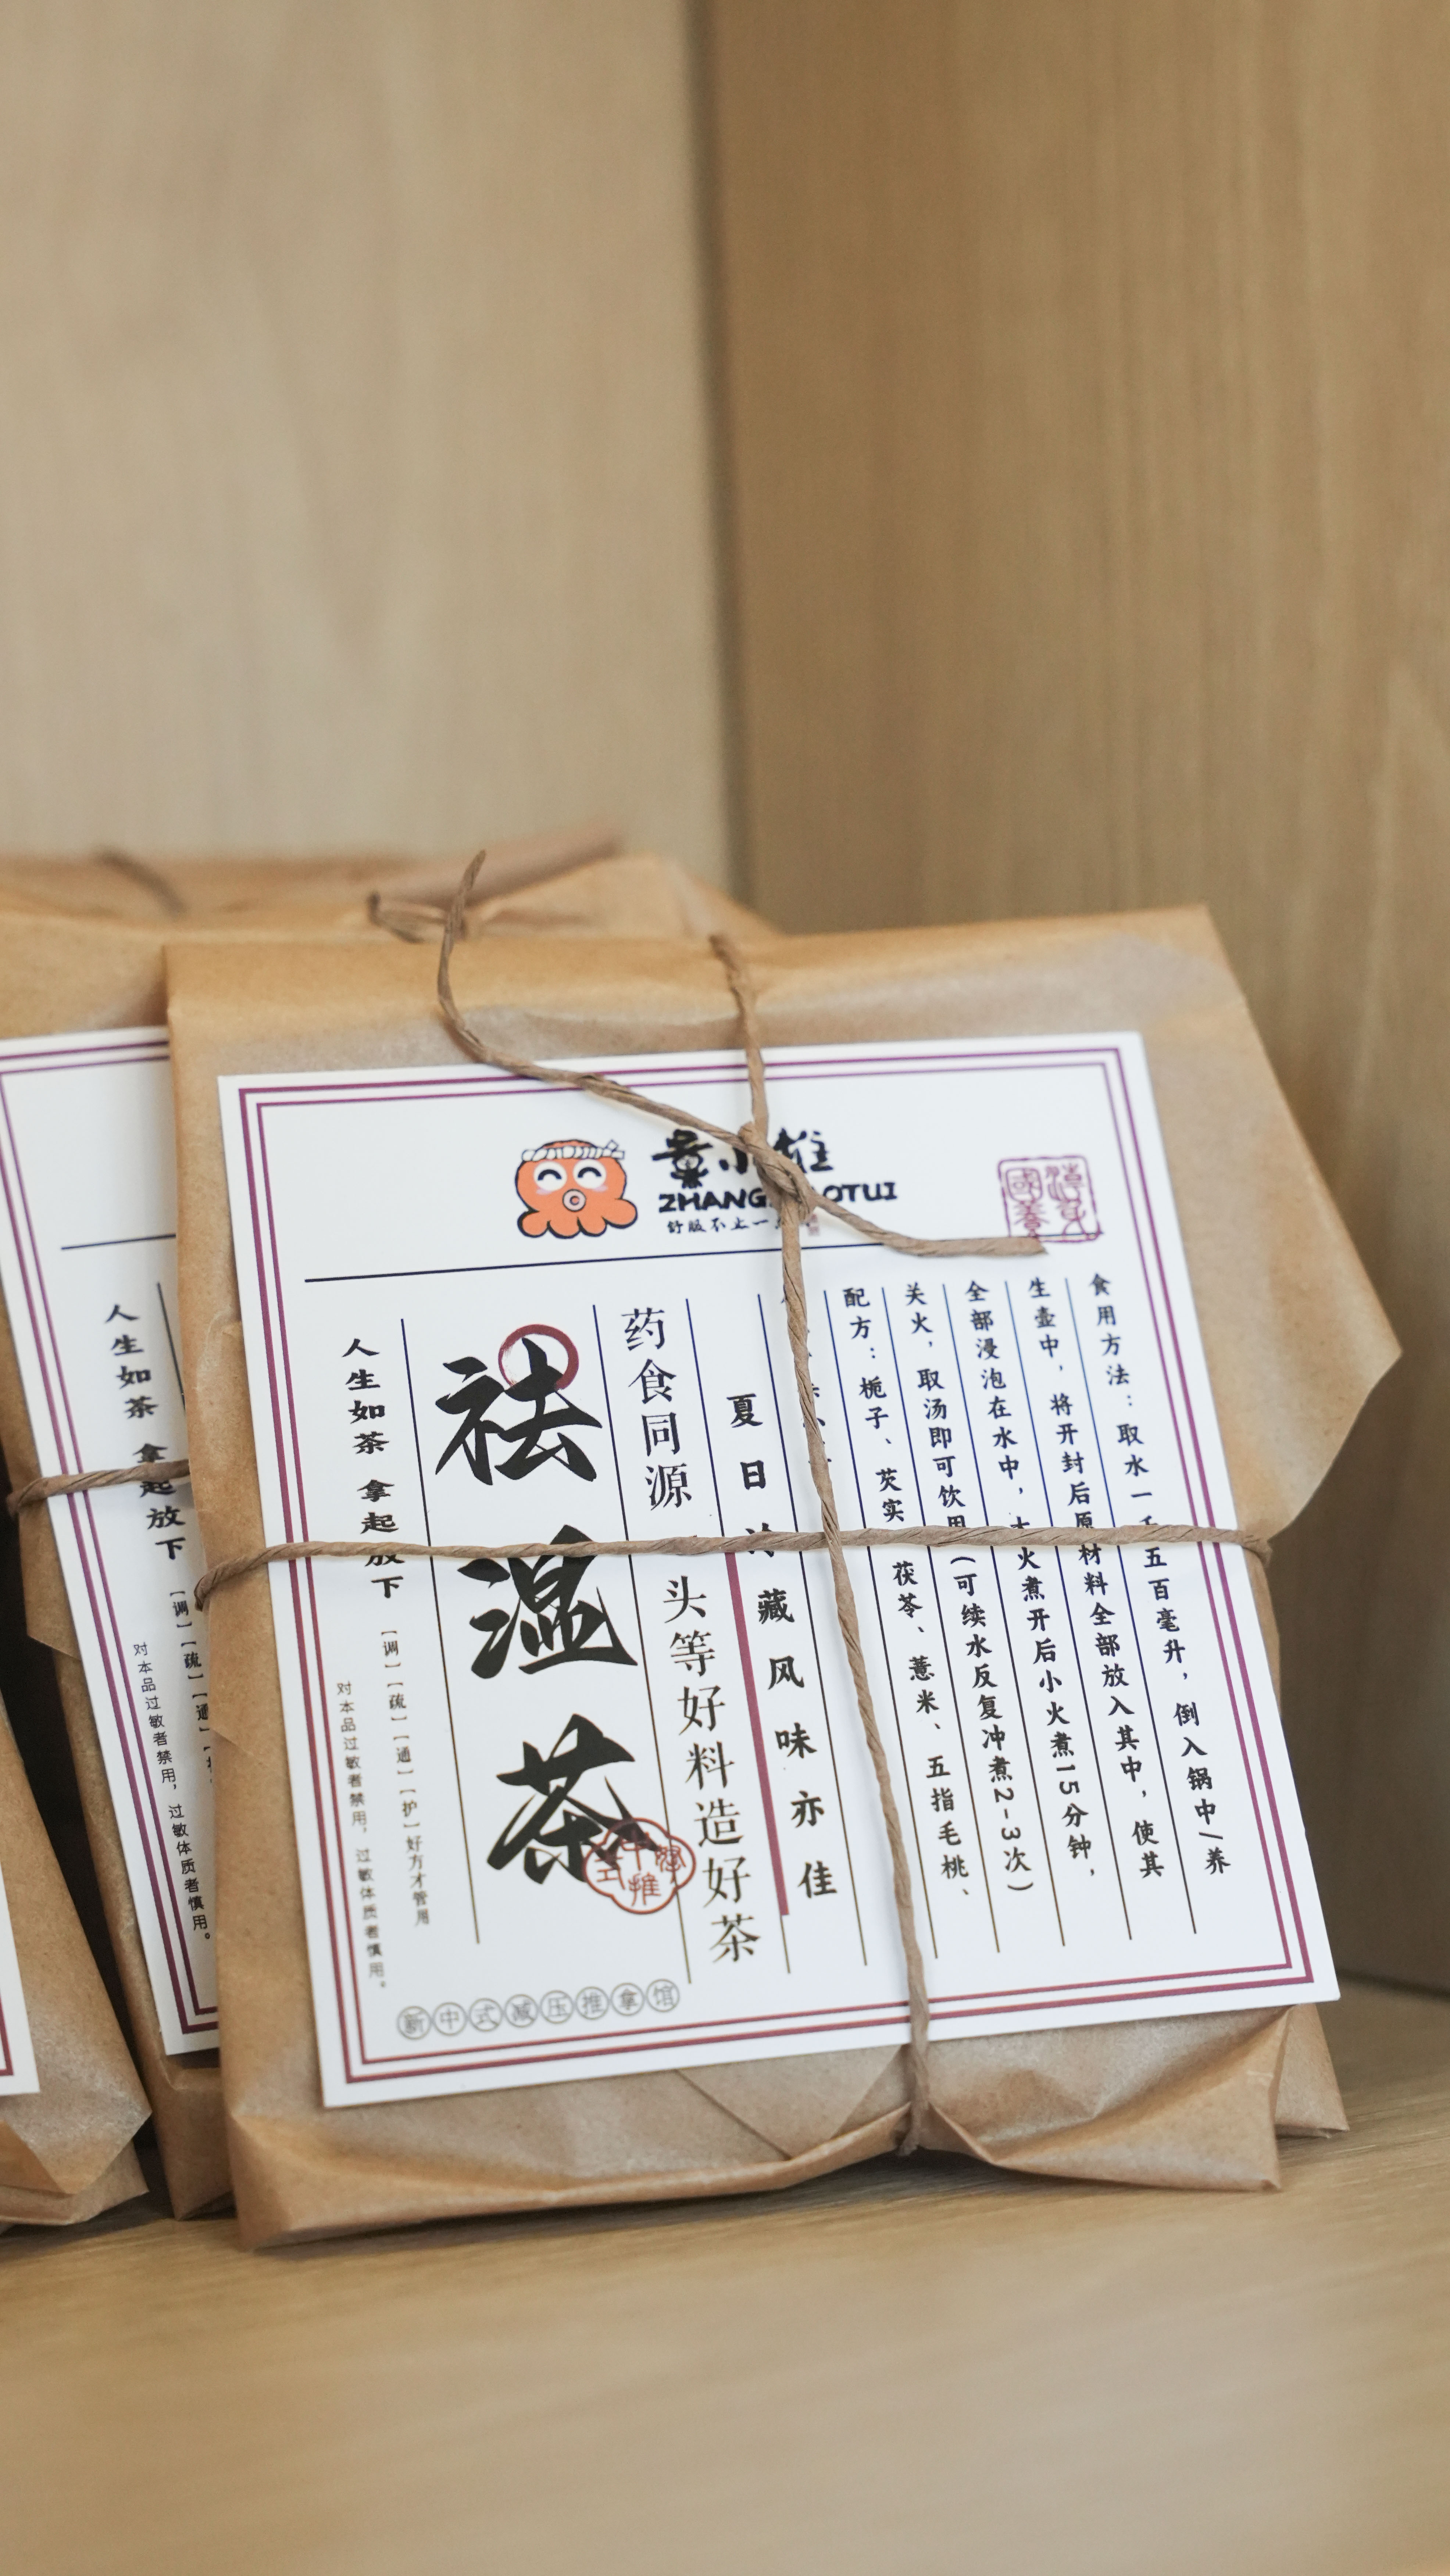 ZHANG
OTUI
舒服不止一点
食用方法：取水一千五百毫升，倒入锅中/养
生壶中，将开封后原材料全部放入其中，使其
全部浸泡在水中，大火煮开后小火煮15分钟，
关火，取汤即可饮用（可续水反复冲煮2-3次）
配方：栀子、芡实、茯苓、薏米、五指毛桃、
夏日 藏风味亦佳
药食同源 头等好料造好茶
祛湿茶
人生如茶 拿起放下
【调】【疏】【通】【护】好方才管用
对本品过敏者禁用，过敏体质者慎用。
新中式减压推拿馆
人生如茶 拿起放下
【调】【疏】【通】
对本品过敏者禁用，过敏体质者慎用。